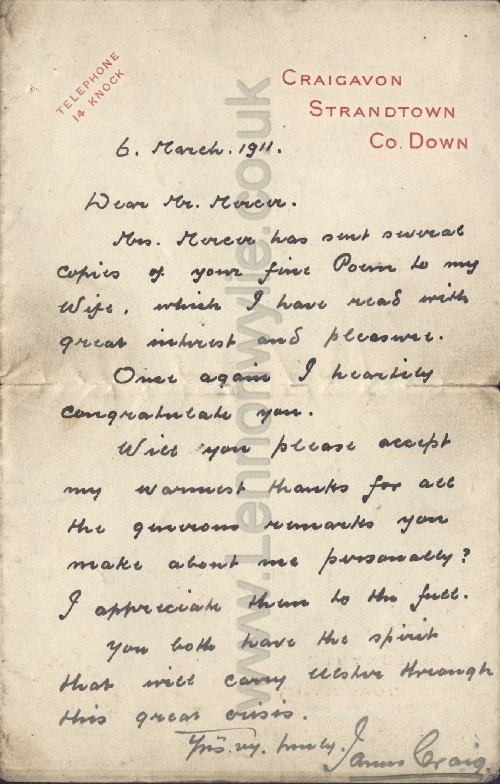 TELEPHONE
14 KNOCK
CRAIGAVON
STRANDTOWN
CO. DOWN
6. March. 1911.
Dear Mr. Mercer.
Mrs. Mercer has sent several
copies of your fine Poem to my
Wife, which I have read with
great interest and pleasure.
Once again I heartily
congratulate you.
Will you please accept
my warmest thanks for all
the generous remarks you
make about me personally?
I appreciate them to the full.
You both have the spirit
that will carry Ulster through
this great crisis.
Yrs. vy. truly.
James Craig.
www.Lennonwylie.co.uk